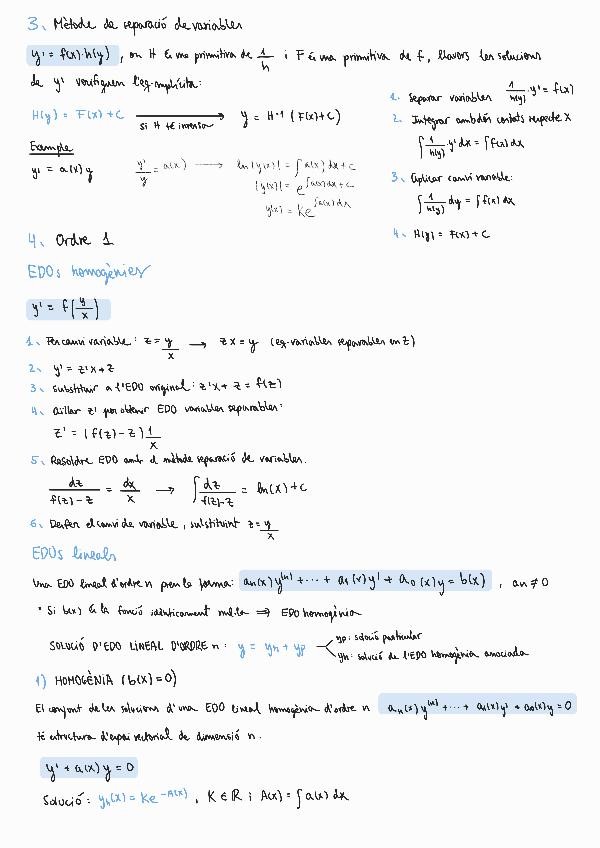 3. Mètode de separació de variables
y' = f(x)·h(y), on H és una primitiva de 1/h i F és una primitiva de f, llavors les solucions
de y' verifiquen l'eq. implícita:
H(y) = F(x) + C → si H té inversa y = H⁻¹(F(x)+C)
Example
y' = a(x) y
y'/y = a(x) → ln|y(x)| = ∫a(x)dx + c
|y(x)| = e^(∫a(x)dx + c)
y(x) = Ke^(∫a(x)dx)
1. Separar variables 1/h(y) · y' = f(x)
2. Integrar ambdós costats respecte x
∫ 1/h(y) y' dx = ∫f(x) dx
3. Aplicar canvi variable:
∫ 1/h(y) dy = ∫f(x) dx
4. H(y) = F(x) + C
4. Ordre 1
EDOs homogènies
y' = f(y/x)
1. Fer canvi variable: z = y/x → zx = y (eq. variables separables en z)
2. y' = z'x + z
3. Substituir a l'EDO original: z'x + z = f(z)
4. Aïllar z' per obtenir EDO variables separables:
z' = (f(z) - z) 1/x
5. Resoldre EDO amb el mètode separació de variables.
dz/(f(z)-z) = dx/x → ∫ dz/(f(z)-z) = ln(x) + C
6. Desfer el canvi de variable, substituint z = y/x
EDOs lineals
Una EDO lineal d'ordre n pren la forma: aₙ(x)y⁽ⁿ⁾ + ··· + a₁(x)y' + a₀(x)y = b(x), aₙ ≠ 0
* Si b(x) és la funció idènticament nul·la ⟹ EDO homogènia
SOLUCIÓ D'EDO LINEAL D'ORDRE n: y = yh + yp
yp: solució particular
yh: solució de l'EDO homogènia associada
1) HOMOGÈNIA (b(x)=0)
El conjunt de les solucions d'una EDO lineal homogènia d'ordre n aₙ(x)y⁽ⁿ⁾ + ··· + a₁(x)y' + a₀(x)y = 0
té estructura d'espai vectorial de dimensió n.
y' + a(x) y = 0
Solució: yh(x) = Ke^(-A(x)), K ∈ ℝ i A(x) = ∫a(x) dx